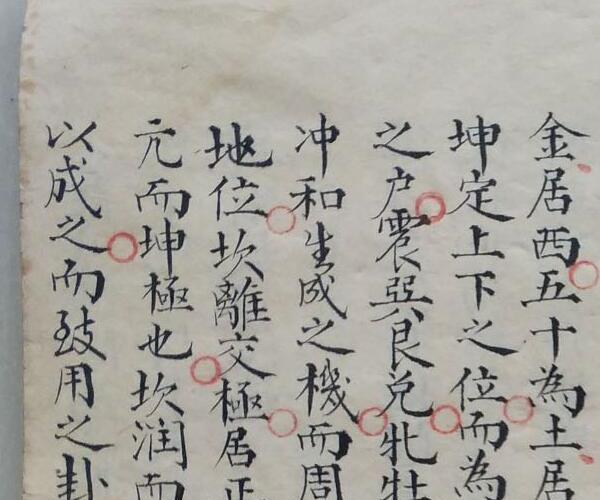 金居西五十為土居
坤定上下之位而為
之户震巽艮兑牝牡
冲和生成之機而周
地位坎離交極居正
亢而坤極也坎润而
以成之而致用之卦